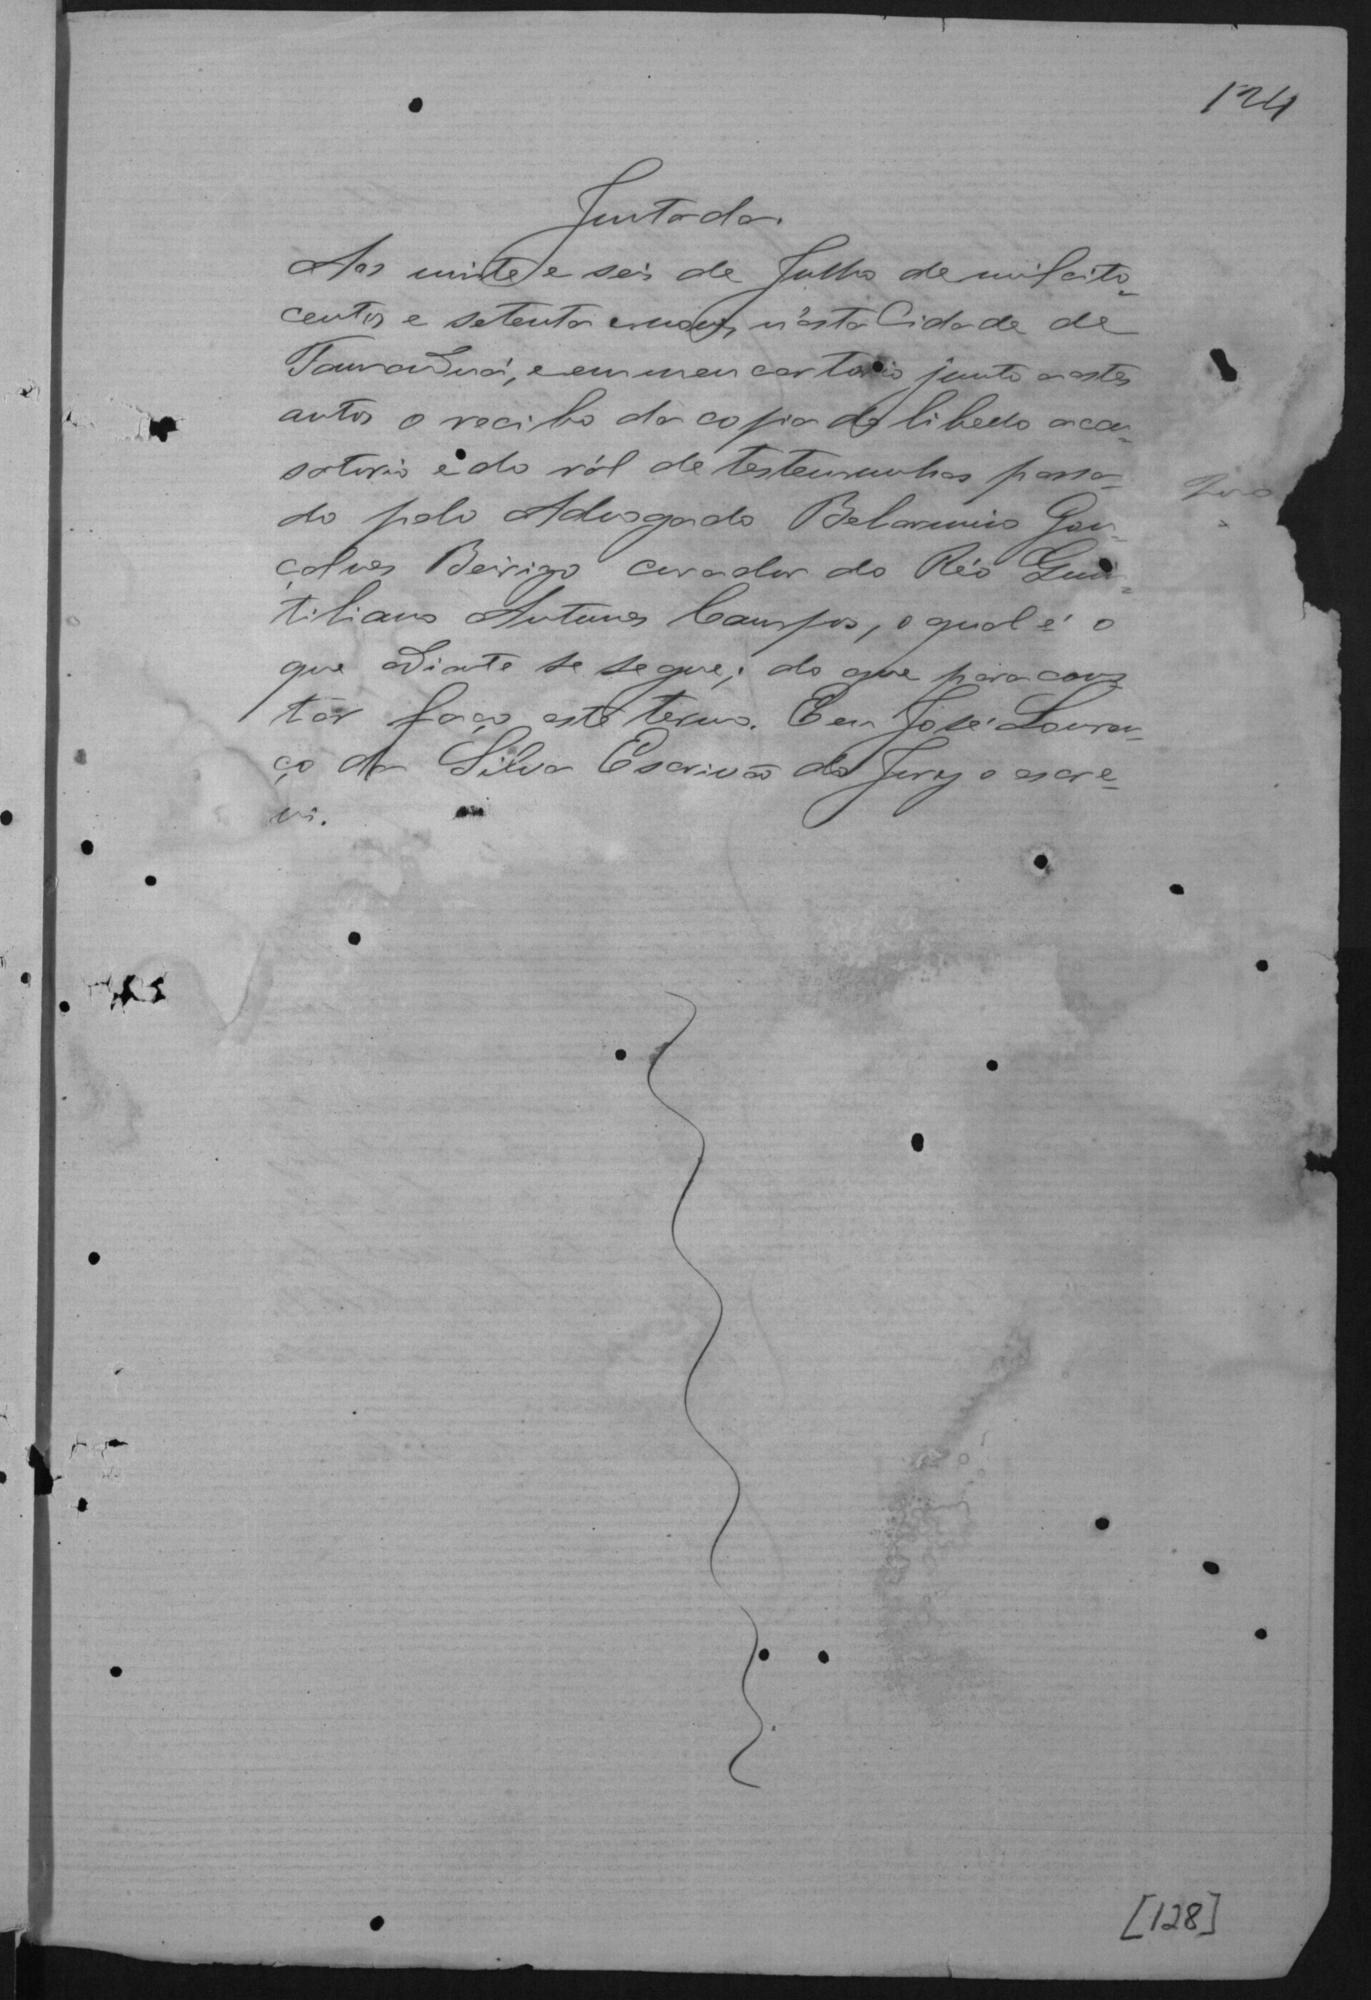 124
Juntada.
Aos vinte e seis de Julho de mil oito-
centos e setenta e nove, n'esta Cidade de
Tamanduá, e em meu cartorio junto a estes
autos o recibo da copia do libello accu-
satorio e do ról de testemunhas passa-
do pelo Advogado Belarmino Gon-
çalves Beirigo curador do Réo Quin-
tiliano Antunes Campos, o qual é o
que adiante se segue; do que para cons
tar faço este termo. Eu José Louren-
ço da Silva Escrivão do Jury o escre-
vi.
[128]